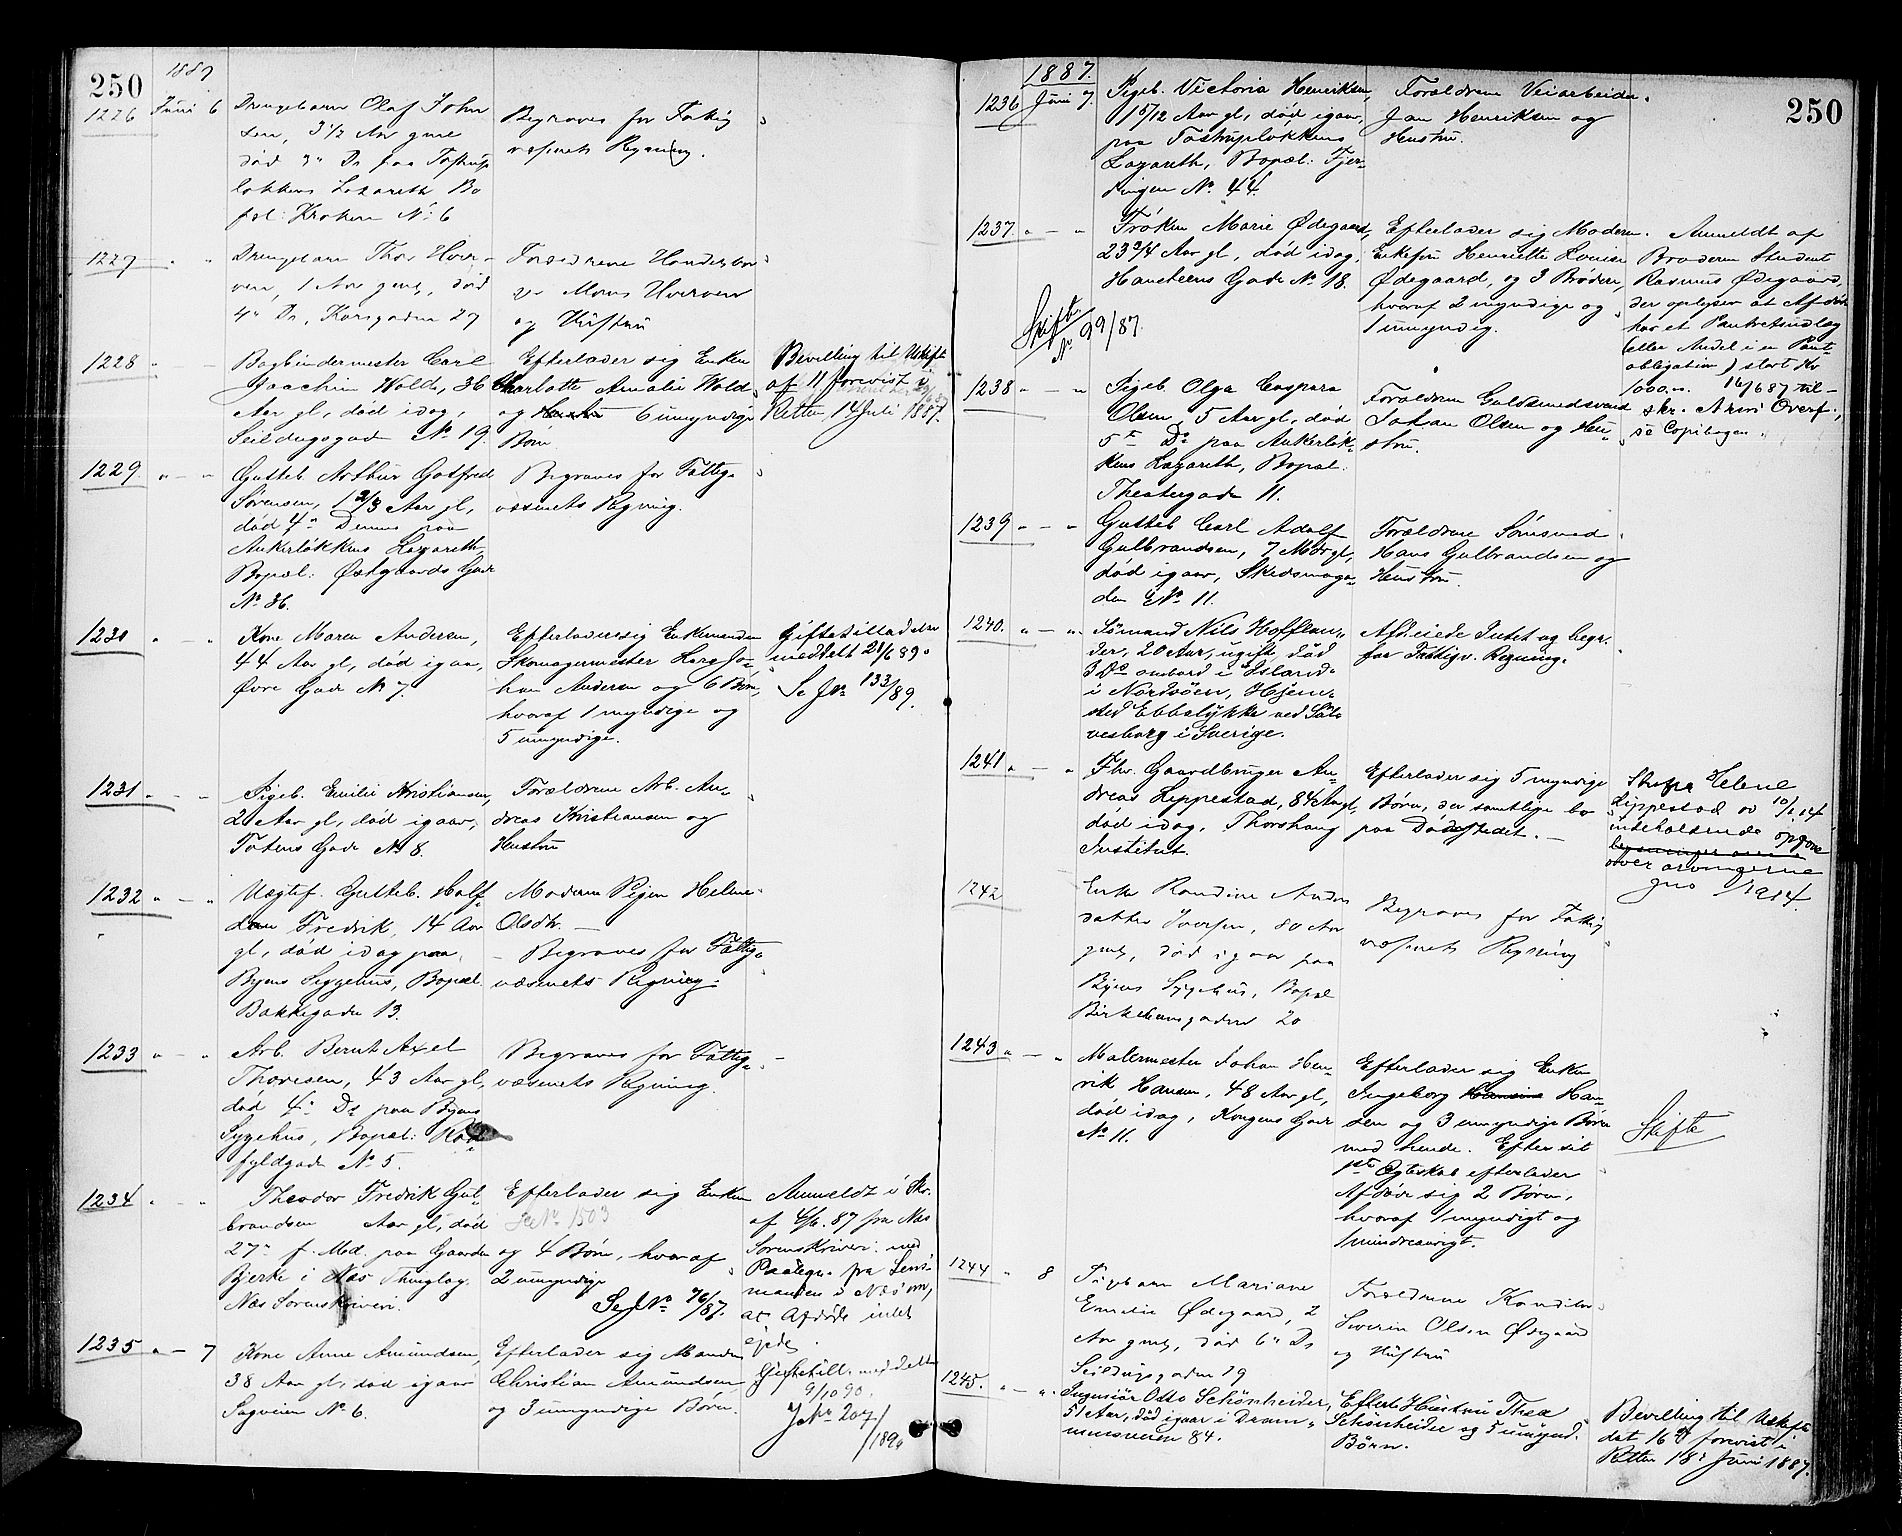 250
1887
1226 Juni 6 Drengebarn Olaf John
sen, 3 1/2 Aar gml
død 3' Ds paa Tostrup
løkkens Lazareth Bo
pæl: Kroken No 6
Begraves for Fattig
væsnets Regning.
1227 Drengebarn Thor Hver
ven, 1 Aar gml, død
4' Ds, Korsgaden 27
Forældrene
Mons Hverven
og Hustru
1228 Bogbindermester Carl
Joachim Wold, 36
Aar gl, død idag,
Seildugsgade No 19.
Efterlader sig Enken
Charlotte Amalie Wold
og 6 umyndige
Børn
Bevilling til Uskift
af 11 forevist i
Retten 14 Juli 1887.
1229 Gutteb. Arthur Gotfred
Sørensen, 1 2/3 Aar gl,
død 4' Dennes paa
Ankerløkkens Lazareth
Bopæl: Østgaards Gade
No 36.
Begraves for Fattig-
væsnets Regning.
1230 Kone Maren Andersen,
44 Aar gl, død igaar,
Øvre Gade No 7.
Efterlader sig Enkemanden
Skomagermester Lars Jo-
han Andersen og 6 Børn,
hvoraf 1 myndige og
5 umyndige.
Giftetilladelse
meddelt 21/6 89.
Se J No 133/89.
1231 Pigeb. Emilie Kristiansen,
2 Aar gl, død igaar,
Totens Gade No 8.
Forældrene Arb. An-
dreas Kristiansen og
Hustru
1232 Uægtef. Gutteb. Half
dan Fredrik, 14 Aar
gl, død idag paa
Byens Sygehus, Bopæl
Bakkegaden 13.
Moderen Pigen Helene
Olsdtr.
Begraves for Fattig-
væsnets Regning.
1233 Arb. Bernt Axel
Thoresen, 43 Aar gl,
død 4' Ds paa Byens
Sygehus, Bopæl:
fyldgade No 5.
Begraves for Fattig-
væsnets Regning.
1234 Theodor Fredrik Gul-
brandsen Aar gl, død
27' f. Md. paa Gaarden
Bjerke i Næs Thinglag
Næs Sorenskriveri.
Efterlader sig Enken
Se No 1503
og 4 Børn, hvoraf
2 umyndige
Se J No 76/87.
Anmeldt i Skr.
af 4/6. 87 fra Næs
Sorenskriveri med
Paategn. fra Lens-
manden i Næs om,
at Afdøde intet
ejede.
1235 7 Kone Anne Amundsen,
38 Aar gl, død igaar
Sagveien No 6.
Efterlader sig Manden
Christian Amundsen,
og 3 umyndige Børn.
Giftetill. meddelt
9/10 90.
J No 207/1890
1887.
250
1236 Juni 7. Pigeb. Victoria Henriksen,
1 5/12 Aar gl, død igaar,
paa Tostrupløkkens
Lazareth, Bopæl: Fjer-
dingen No 44.
Forældrene Veiarbeider
Jan Henriksen og
Hustru.
1237. Frøken Marie Ødegaard,
23 3/4 Aar gl, død idag,
Hausteens Gade No 18.
Skifte
No 99/87.
Efterlader sig Moderen
Enkefru Henriette Louise
Ødegaard, og 3 Brødre,
hvoraf 2 myndige og
1 umyndig.
Anmeldt af
Broderen Student
Rasmus Ødegaard,
der oplyser at Afdøde
har et Panteindlæg
(eller Andel i en Pant-
obligation) stort Kr
1000.00. 16/6 87 til-
skr. Overf.,
se Copibogen.
1238 Pigeb. Olga Caspara
Olsen, 5 Aar gl, død
5' Ds paa Ankerløk-
kens Lazareth, Bopæl:
Theatergade 11.
Forældrene Guldsmedsvend
Johan Olsen og Hu-
stru.
1239 Gutteb Carl Adolf
Gulbrandsen, 7 Mdr gl,
død igaar, Skedsmoga-
den No 11.
Forældrene
Hans Gulbrandsen og
Hustru.
1240. Sømand Nils Hofflan-
der, 20 Aar, ugift, død
3 Ds ombord i Island
i Nordsøen, Hjem-
sted Ebbalykke ved Søl-
vesborg i Sverige.
Afd. eiede Intet og begr.
for Fattigv. Regning.
1241 Fhv. Gaardbruger An-
dreas Lippestad, 84 Aar gl,
død idag, Thorshaug
Institut.
Efterlader sig 5 myndige
Børn, der samtlige bo
paa Dødsstedet.
Helene
Lippestad 10/2 14
indeholdende opgave
over arvingerne
1914.
1242 Enke Randine Anders
datter Iversen, 80 Aar
gml, død igaar paa
Byens Sygehus, Bopæl
Birkebeinergaden 20
Begraves for Fattig
væsnets Regning
1243 Malermester Johan Hen-
rik Hansen, 48 Aar gl,
død idag, Kongens Gade
No 11.
Efterlader sig Enken
Ingeborg Hansine Han-
sen og 3 umyndige Børn
med hende. Efter sit
1ste Ægteskab efterlader
Afdøde sig 2 Børn,
hvoraf 1 myndigt og
1 mindreaarigt.
Skifte
1244 8 Pigebarn Mariane
Emelie Ødegaard, 2
Aar gml, død 6' Ds
Seildugsgaden 19
Forældrene Konditor
Severin Olsen Ødegaard
og Hustru
1245. Ingeniør Otto Schönheider,
51 Aar, død igaar i Dram-
mensveien 84.
Efterl. Hustru Thea
Schönheider og 5 umynd.
Børn.
Bevilling til Uskifte
dat 16de forevist i
Retten 18' Juni 1887.